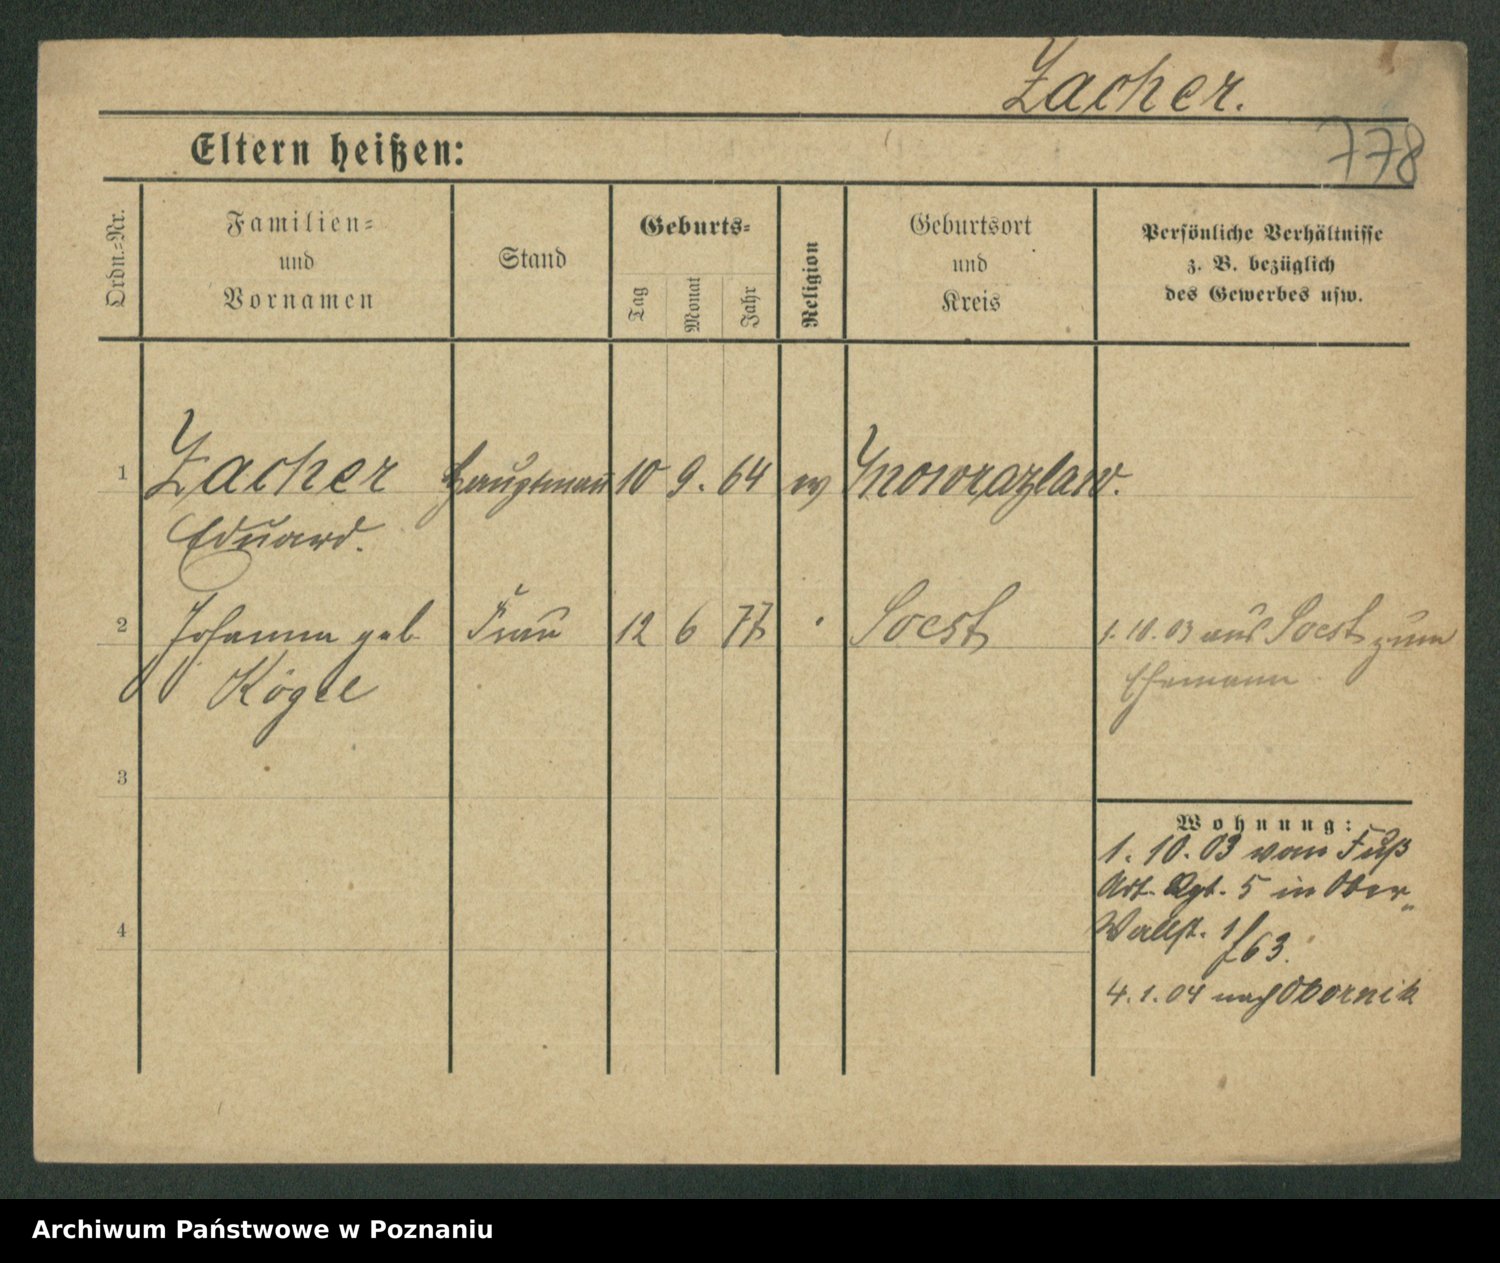 Zacher.
778
Eltern heißen:
Ordn.-Nr.
Familien-
und
Vornamen
Stand
Geburts-
Tag
Monat
Jahr
Religion
Geburtsort
und
Kreis
Persönliche Verhältnisse
z. B. bezüglich
des Gewerbes usw.
1 Zacher Hauptmann 10 9. 64 ev Inowrazlaw.
Eduard.
2 Johanna geb Frau 12 6 77 Soest 1.10.03 aus Soest zum
Kögel Ehemann
3
Wohnung:
1. 10. 03 vom Fuß
Art. Rgt. 5 in Ober-
4 Wallst. 1/63.
4.1.04 nach Obornik
Archiwum Państwowe w Poznaniu